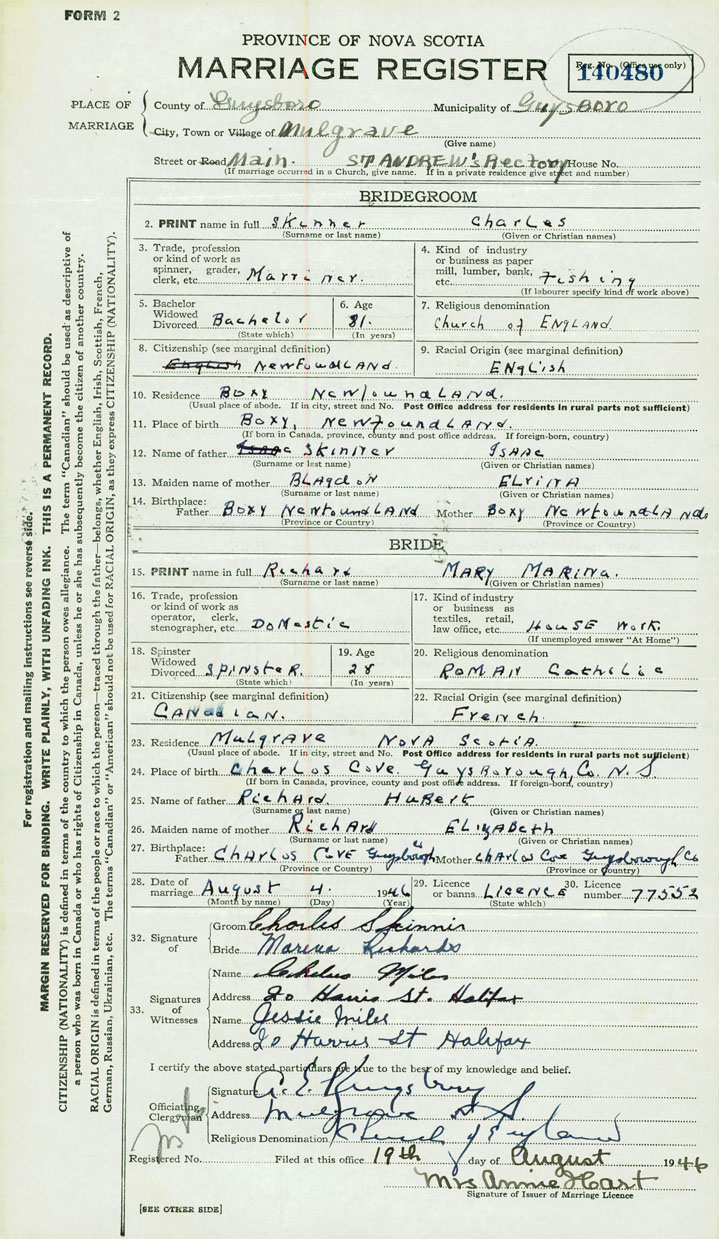 FORM 2
PROVINCE OF NOVA SCOTIA
MARRIAGE REGISTER
Reg. No. (Office use only)
140480
PLACE OF MARRIAGE
County of Guysboro Municipality of Guysboro
City, Town or Village of Mulgrave
(Give name)
Street or Road Main. ST ANDREW'S Rectory House No.
(If marriage occurred in a Church, give name. If in a private residence give street and number)
BRIDEGROOM
2. PRINT name in full Skinner Charles
(Surname or last name) (Given or Christian names)
3. Trade, profession or kind of work as spinner, grader, clerk, etc. Marriner.
4. Kind of industry or business as paper mill, lumber, bank, etc. Fishing
(If labourer specify kind of work above)
5. Bachelor Widowed Divorced Bachelor
(State which)
6. Age 31.
(In years)
7. Religious denomination
Church of ENGLAND
8. Citizenship (see marginal definition)
English NewFoundLAND.
9. Racial Origin (see marginal definition)
ENGLish
10. Residence BOXY NEWfoundLAND.
(Usual place of abode. If in city, street and No. Post Office address for residents in rural parts not sufficient)
11. Place of birth BOXY, NEWFoundLAND.
(If born in Canada, province, county and post office address. If foreign-born, country)
12. Name of father Isaac Skinner ISAAC
(Surname or last name) (Given or Christian names)
13. Maiden name of mother BLAgdoN ELVINA
(Surname or last name) (Given or Christian names)
14. Birthplace: Father BOXY NewFoundLAND Mother BOXY NewFoundLANd
(Province or Country) (Province or Country)
BRIDE
15. PRINT name in full Richard MARY MARINA.
(Surname or last name) (Given or Christian names)
16. Trade, profession or kind of work as operator, clerk, stenographer, etc. DoMestic
17. Kind of industry or business as textiles, retail, law office, etc. HouSE Work
(If unemployed answer "At Home")
18. Spinster Widowed Divorced SPINSTER.
(State which)
19. Age 28
(In years)
20. Religious denomination
ROMAN Catholic
21. Citizenship (see marginal definition)
CANADIAN.
22. Racial Origin (see marginal definition)
French
23. Residence Mulgrave NOVA ScoTIA.
(Usual place of abode. If in city, street and No. Post Office address for residents in rural parts not sufficient)
24. Place of birth Charlos Cove Guysborough Co. N.S
(If born in Canada, province, county and post office address. If foreign-born, country)
25. Name of father Richard. HuBert
(Surname or last name) (Given or Christian names)
26. Maiden name of mother Richard ELIZABeth
(Surname or last name) (Given or Christian names)
27. Birthplace: Father Charlos Cove Guysborough Mother Charlos Cove Guysborough Co
(Province or Country) (Province or Country)
28. Date of marriage August 4. 1946
(Month by name) (Day) (Year)
29. Licence or banns LICENCE
(State which)
30. Licence number 77552
32. Signature of
Groom Charles Skinnir
Bride Marina Richards
33. Signatures of Witnesses
Name Miles
Address 20 Harris St. Halifax
Name Jessie Miles
Address 20 Harris St Halifax
I certify the above stated particulars are true to the best of my knowledge and belief.
Officiating Clergyman
Signature A. E. Kingsbury
Address Mulgrave N.S.
Religious Denomination Church of England
Registered No. Filed at this office 19th day of August 1946
Mrs Annie Hart
Signature of Issuer of Marriage Licence
[SEE OTHER SIDE]
For registration and mailing instructions see reverse side.
MARGIN RESERVED FOR BINDING. WRITE PLAINLY, WITH UNFADING INK. THIS IS A PERMANENT RECORD.
CITIZENSHIP (NATIONALITY) is defined in terms of the country to which the person owes allegiance. The term "Canadian" should be used as descriptive of
a person who was born in Canada or who has rights of Citizenship in Canada, unless he or she has subsequently become the citizen of another country.
RACIAL ORIGIN is defined in terms of the people or race to which the person—traced through the father—belongs, whether English, Irish, Scottish, French,
German, Russian, Ukrainian, etc. The terms "Canadian" or "American" should not be used for RACIAL ORIGIN, as they express CITIZENSHIP (NATIONALITY).